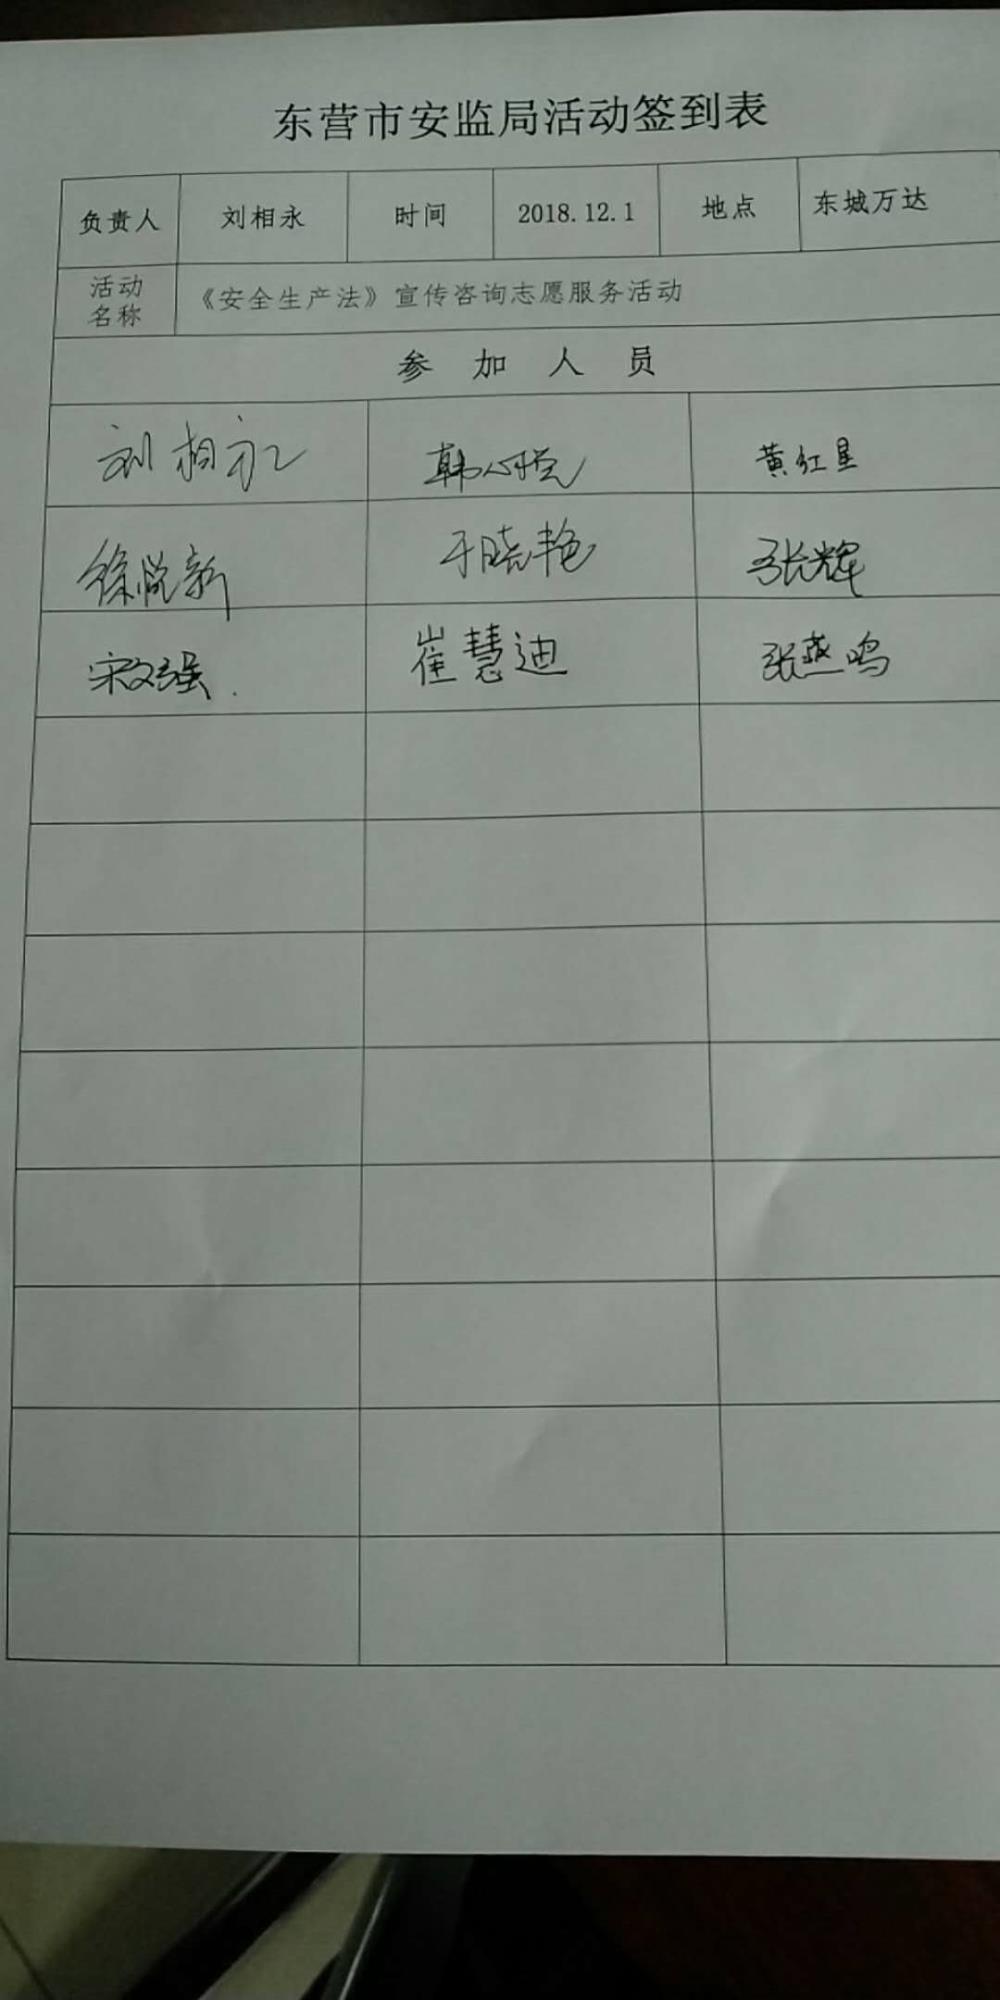 东营市安监局活动签到表
负责人 刘相永 时间 2018.12.1 地点 东城万达
活动名称 《安全生产法》宣传咨询志愿服务活动
参加人员
刘相永 韩心悦 黄红星
徐悦新 于晓艳 张辉
宋文强 崔慧迪 张燕鸣